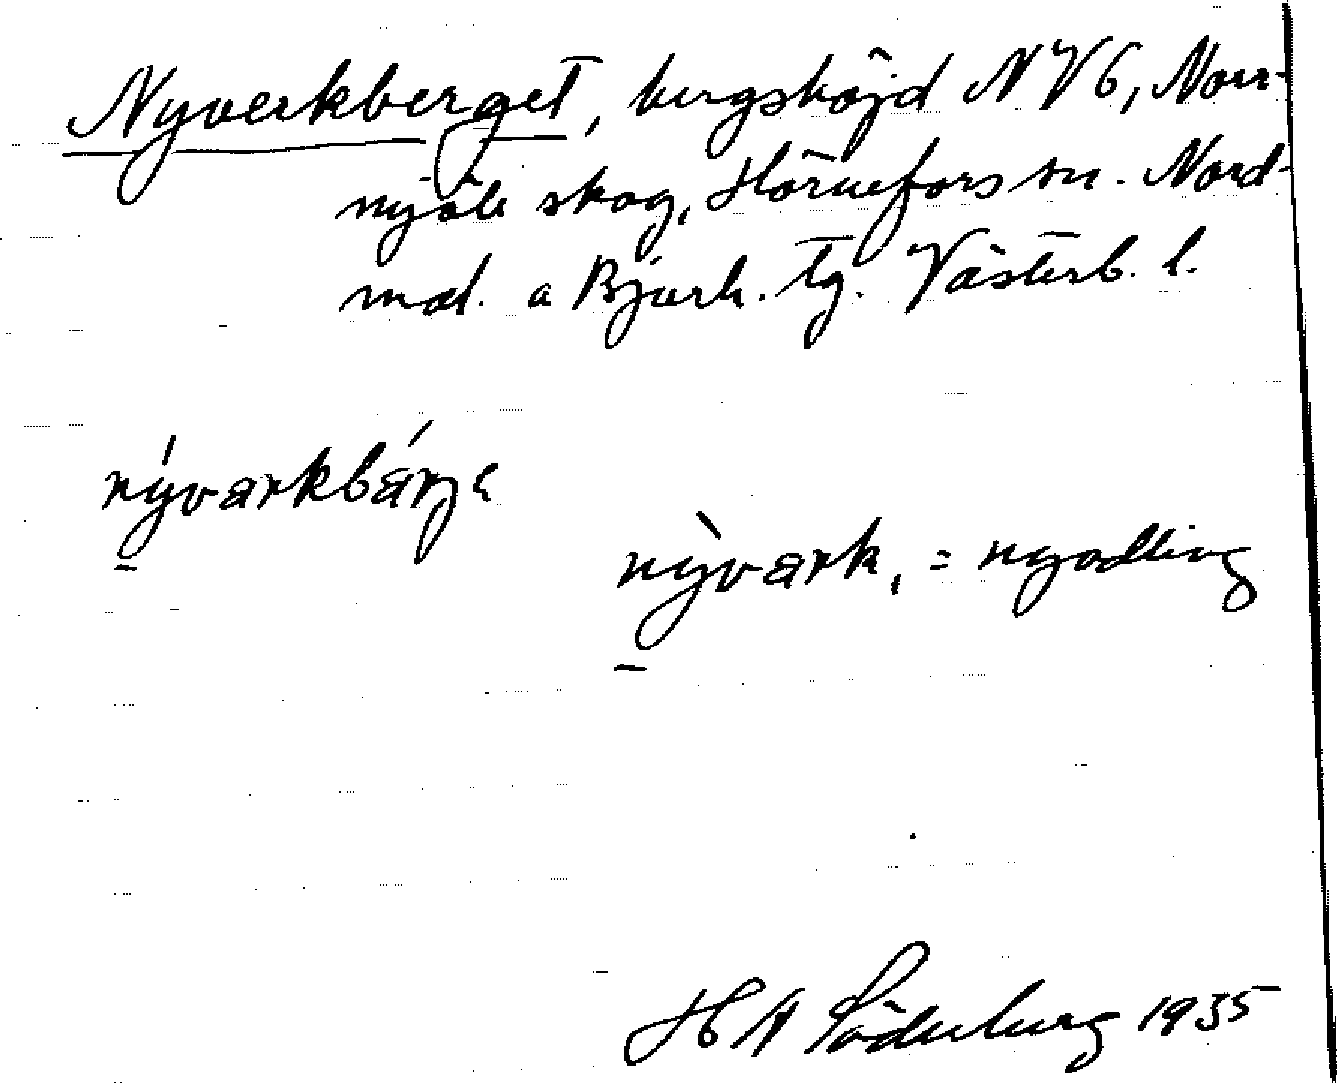 Nyverkberget, bergshöjd NV6, Norr-
nyåle skog, Hörnefors sn. Nord-
mal. o Bjurh. tg. Västerb. l.
nývarkbárje
nỳvark, = nyodling
H A Söderberg 1935